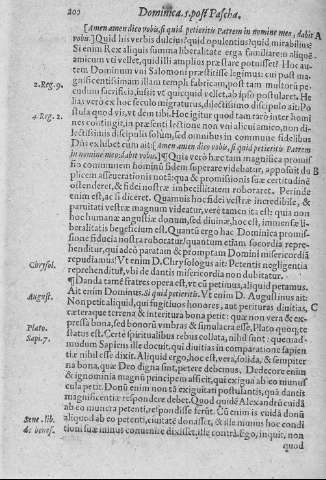 200 Dominica. 5. post Pascha.
[Amen amen dico vobis, si quid petieritis Patrem in nomine meo, dabit A
vobis.] Quid his verbis dulcius? quid opulentius? quid mirabilius
Si enim Rex aliquis summa liberalitate erga familiarem aliquē
amicum vti vellet, quid illi amplius præstare potuisset? Hoc au-
tem. Dominum vni Salomoni præstitisse legimus: cui post ma-
2. Reg. 9. gnificentissimam illam templi fabricam, post tam multorū pe-
cudum sacrificia, iussit vt quicquid vellet, ab ipso postularet. He
lias, verò ex hoc seculo migraturus, dilectissimo discipulo ait: Po
4. Reg. 2. stula quod vis, vt dem tibi. Hoc igitur quod tam rarò inter homi
nes contingit, in præsenti lectione non vni alicui amico, non di-
lectissimis discipulis solùm, sed omnibus in commune fidelibus
Dñs exhibet cum ait: [Amen amen dico vobis, si quid petieritis Patrem
in nomine meo, dabit vobis.] ¶ Quia verò hæc tam magnifica promis
sio communem hominū fidem superare videbatur, apposuit du B
plicem asseuerationis notā: qua & promissionis suæ certitudinē
ostenderet, & fidei nostræ imbecillitatem roboraret. Perinde
enim est, ac si diceret. Quamuis hoc fidei vestræ incredibile, &
paruitati vestræ magnum videatur, verè tamen ita est: quia non
hoc humanæ angustiæ donum, sed diuinæ, hoc est, immensæ li-
beralitatis beneficium est. Quantū ergo hac Dominica promis-
sione fiducia nostra roboratur, quantum etiam socordia repre-
henditur, qui adeò paratam & promptam Domini misericordiā
Chrysol. repudiamus? Vt enim D. Chrysologus ait: Petentis negligentia
reprehenditur, vbi de dantis misericordia non dubitatur.
¶ Danda tamē fratres opera est, vt cū petimus, aliquid petamus.
August. Ait enim Dominus. Si quid petieritis. Vt enim D. Augustinus ait:
Non petit aliquid, qui fugitiuos honores, aut perituras diuitias, C
cæteraque terrena & interitura bona petit: quæ non vera & ex-
Plato. pressa bona, sed bonorū vmbras & simulacra esse, Plato quoq; te
Sapi. 7. status est. Certè spiritualibus rebus collata, nihil sunt: quemad-
modum Sapiens ille docuit, qui diuitias in comparatione sapien
tiæ nihil esse dixit. Aliquid ergo, hoc est, vera, solida, & sempiter
na bona, quæ Deo digna sint, petere debemus. Dedecore enim
& ignominia magnū principem afficit, qui exigua ab eo munus
cula petit. Donū enim non tā exiguitati postulantis, quā dantis
magnificentiæ respondere debet. Quod quidē Alexandrū cuidā
ab eo muncra petenti, respondisse ferūt. Cū enim is cuidā donū
Sene. lib. aliquod ab eo petenti, ciuitatē donasset, & ille munus hoc condi
de benef. tioni suæ minus conuenire dixisset, ille contrà, Ego, inquit, non
quod